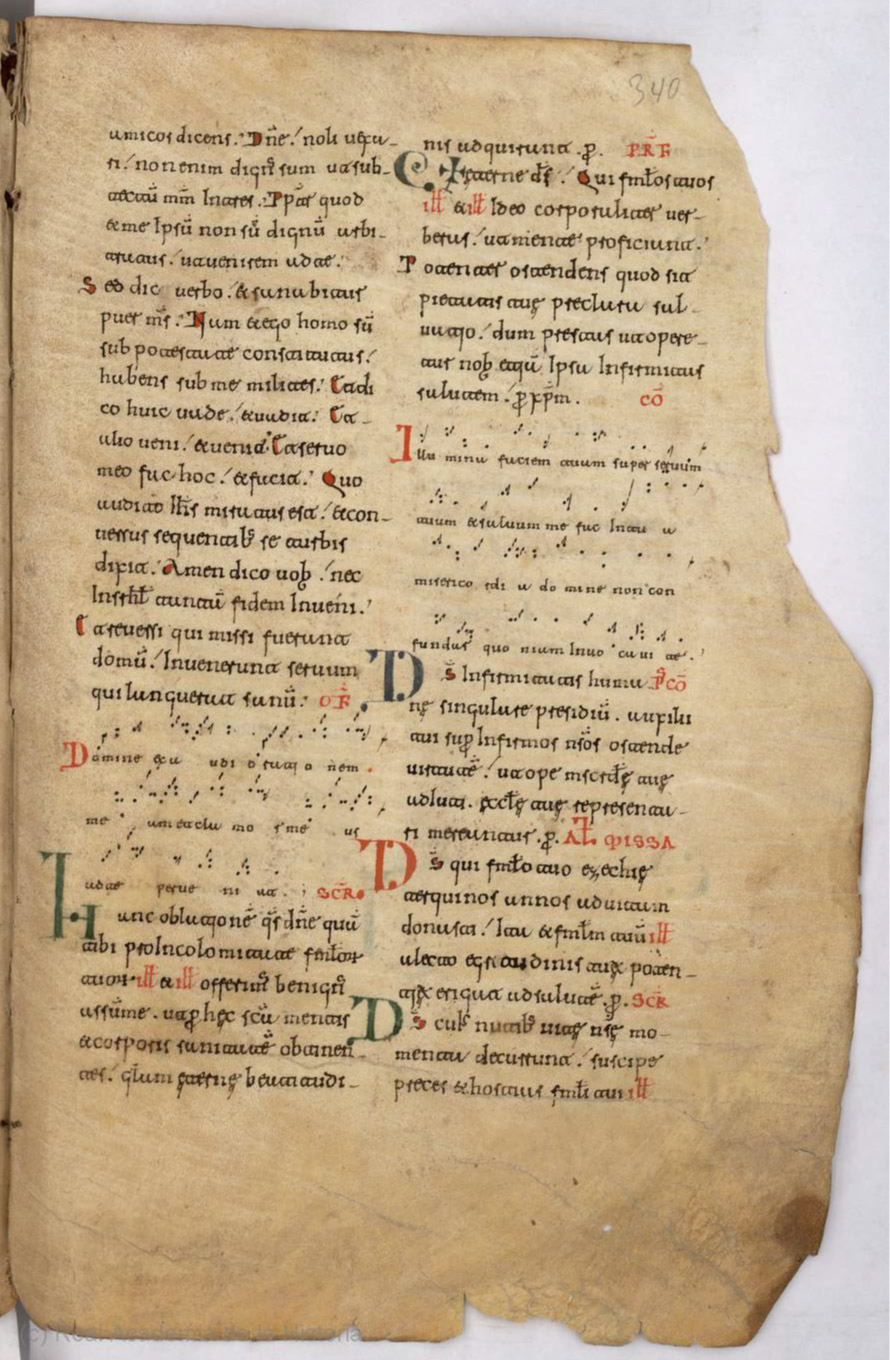 340
amicos dicens. Dñe. noli uexa-
ri. non enim dign sum ut sub-
tectū mm Intres. Ppt quod
& me Ipsū non sū dignū arbi-
tratus. ut uenirem ad te.
Sed dic uerbo. & sanabitur
puer ms. Nam & ego homo sū
sub potestate constitutus.
habens sub me milites. & di
co huic uade. & uadit. Et
alio ueni. & uenit. Et seruo
meo fac hoc. & facit. Quo
audito Ihs miratus est. & con-
uersus sequentib se turbis
dixit. Amen dico uob. nec
In isrhl tantā fidem Inueni.
Et reuersi qui missi fuerant
domū. Inuenerunt seruum
qui languerat sanū. OF
Domine exa udi o ratio nem
me am et cla mor me us
ad te perue ni at. SCR.
Hanc oblationē qs dñe quā
tibi pro Incolomitate fmlor
tuor ill & ill offerim benign
assūme. ut p hec scā mentis
& corporis sanitatē obtinen-
tes. glam eterne beatitudi-
nis adquirant. p. PRF
Eterne ds. Qui fmlos tuos
ill & ill Ideo corporaliter uer-
beras. ut mente proficiant.
Potenter ostendens quod sit
pietatis tue preclara sal-
uatio. dum prestas ut opere-
tur nob etiā Ipsa Infirmitas
salutem. p xpm. co
Illu mina faciem tuum super seruum
tuum & saluum me fac In tu a
misericordi a do mine non con
fundar quo niam Inuo caui te.
Ds Infirmitatis humane PCO
ne singulare presidiū. auxilii
tui supr Infirmos nros ostende
uirtutē. ut ope mscrde tue
adiuti. eccle tue representa-
ri mereantur. p. AL MISSA
Ds qui fmlo tuo ezechie
ter quinos annos ad uitam
donasti. Ita & fmlm tuū ill
a lecto egritudinis tua poten-
tia erigat ad salutē. p. SCR
Ds cui nutib uite nre mo-
menta decurrunt. suscipe
preces & hostias fmli tui ill
(c) Real Academia de la Historia